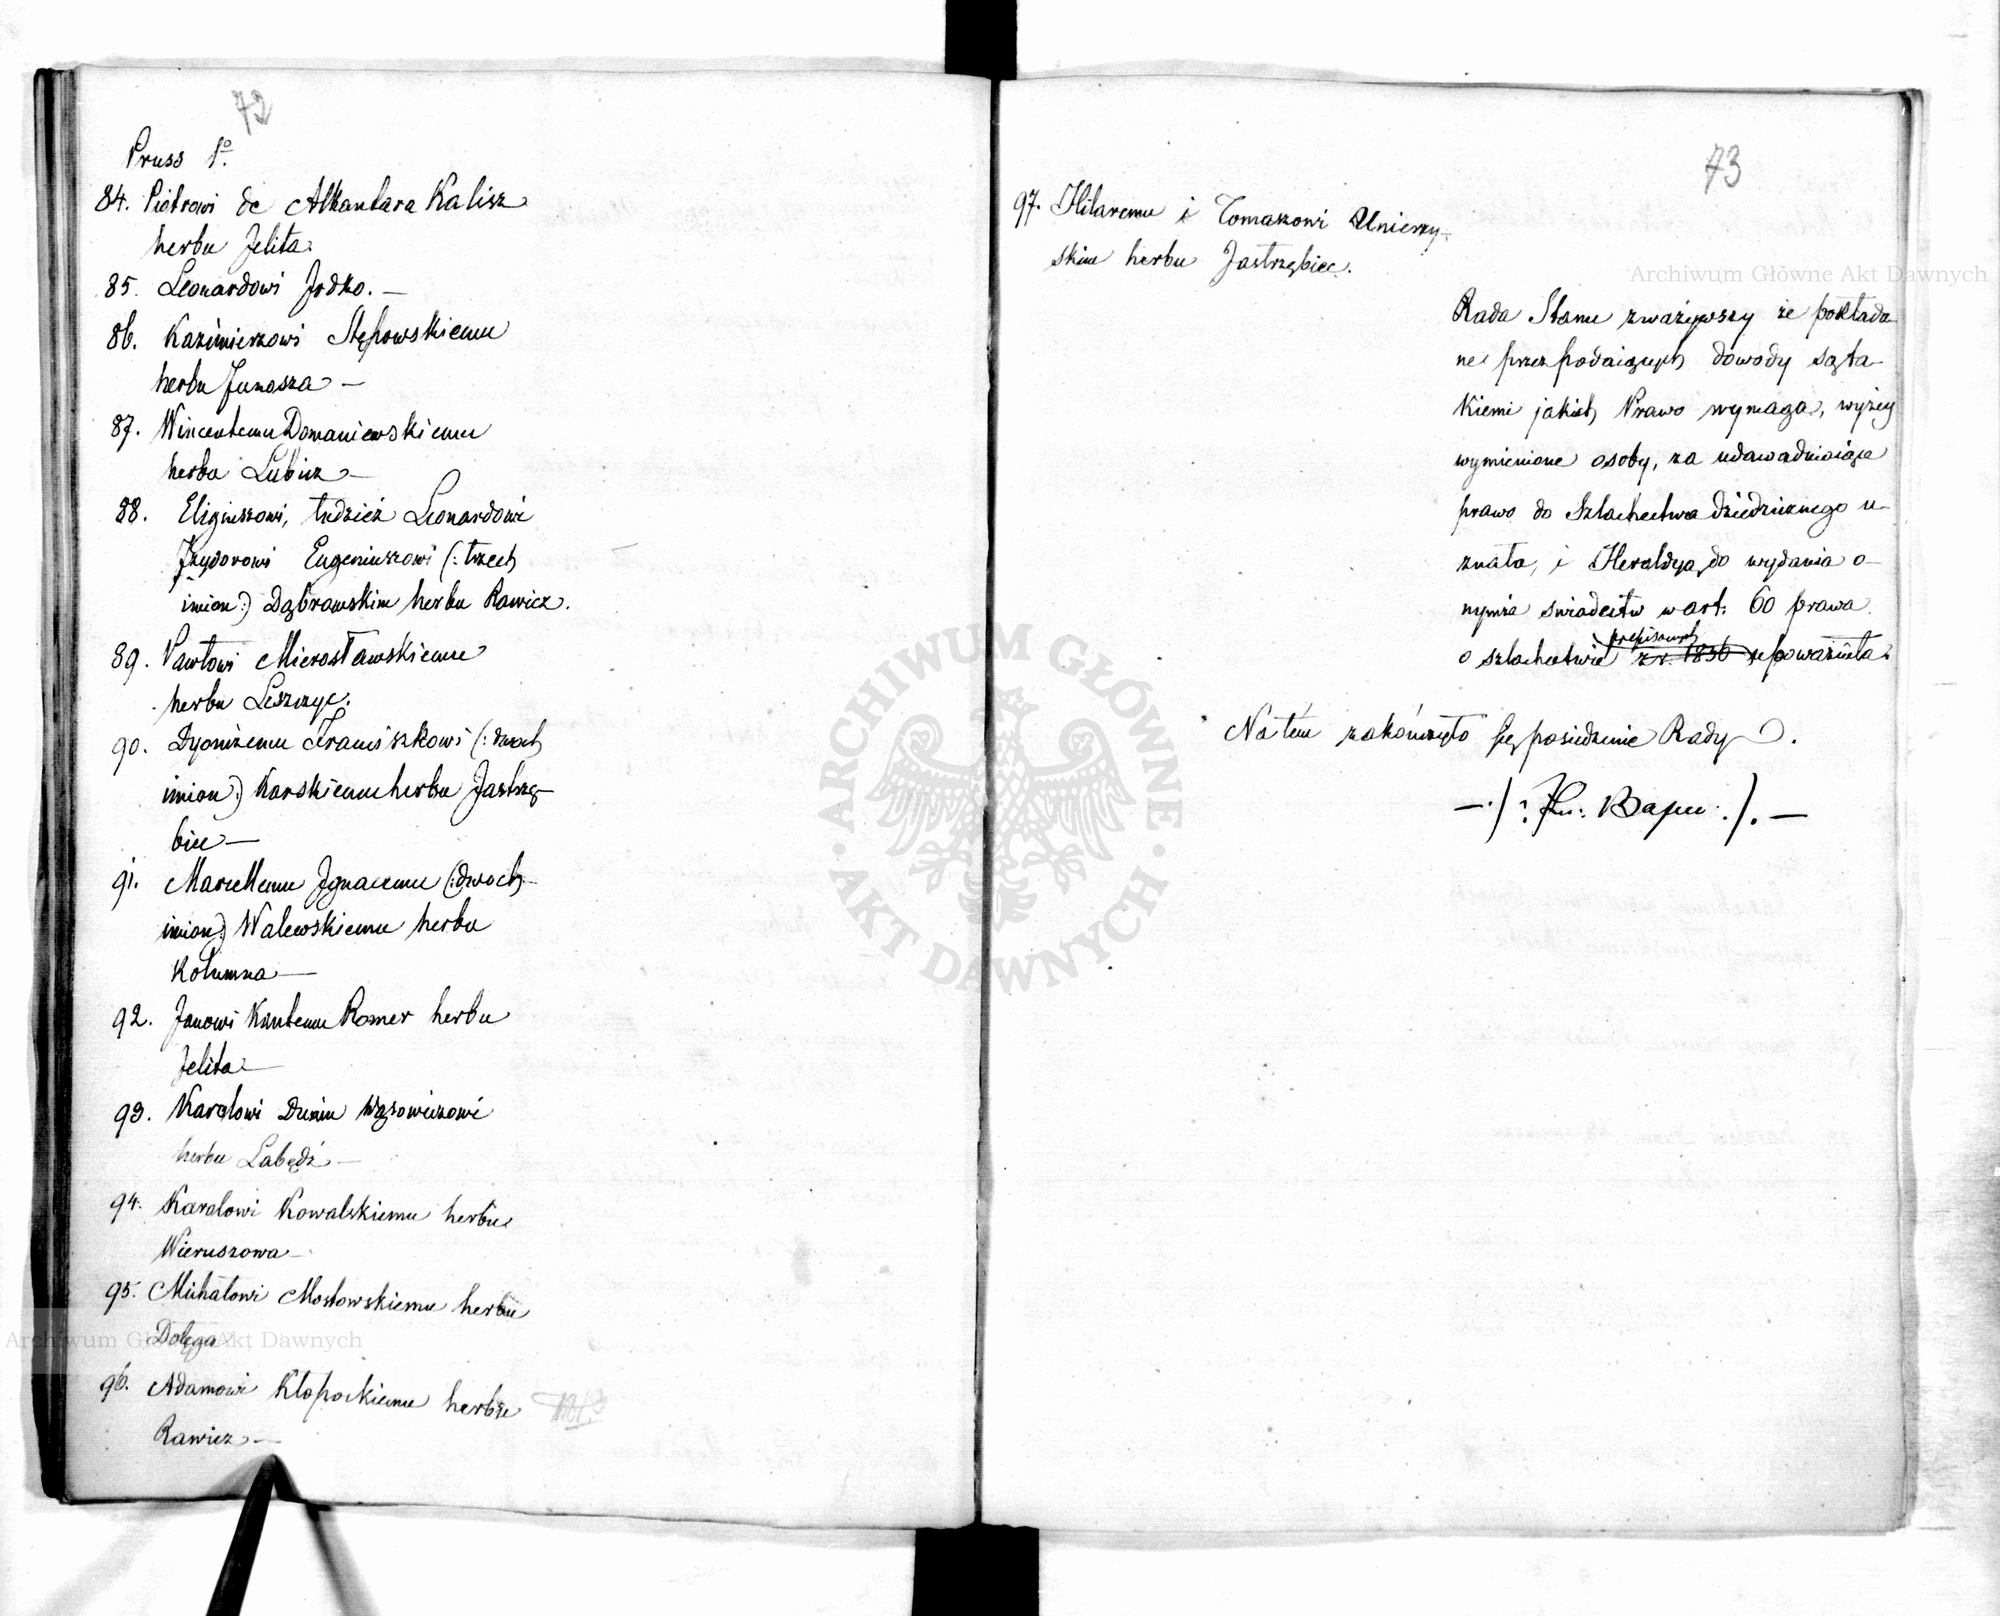 72
Pruss 1º
84. Piotrowi de Alkantara Kalisz
herbu Jelita.
85. Leonardowi Jodko. —
86. Kazimierzowi Stępowskiemu
herbu Junosza —
87. Wincentemu Domaniewskiemu
herbu Lubicz —
88. Eligiuszowi, tudzież Leonardowi
Izydorowi Eugeniuszowi (: trzech
imion :) Dąbrowskim herbu Rawicz.
89. Pawłowi Mierosławskiemu
herbu Leszczyc.
90. Dyonizemu Franciszkowi (: dwoch
imion :) Karskiemu herbu Jastrzę-
biec —
91. Marcellemu Ignacemu (: dwoch
imion :) Walewskiemu herbu
Kolumna —
92. Janowi Kantemu Romer herbu
Jelita —
93. Karolowi Dunin Wąsowiczowi
herbu Łabędź —
94. Karolowi Kowalskiemu herbu
Wieruszowa —
95. Michałowi Mosłowskiemu herbu
Dołęga
96. Adamowi Kłopockiemu herbu
Rawicz —
73
97. Hilaremu i Tomaszowi Unierzy-
skim herbu Jastrzębiec.
Rada Stanu zważywszy że pokłada
ne przez podaiących dowody są ta-
kiemi jakich Prawo wymaga, wyżey
wymienione osoby, za udawadniaiące
prawo do Szlachectwa dziedzicznego u-
znała, i Heroldyą do wydania o-
nymże świadectw w art: 60 prawa
przepisanych
o szlachectwie z r. 1836 upoważniła.
Na tém zakończyło się posiedzenie Rady.
—./: :/. —
ARCHIWUM GŁÓWNE AKT DAWNYCH
Archiwum Główne Akt Dawnych
Archiwum Główne Akt Dawnych